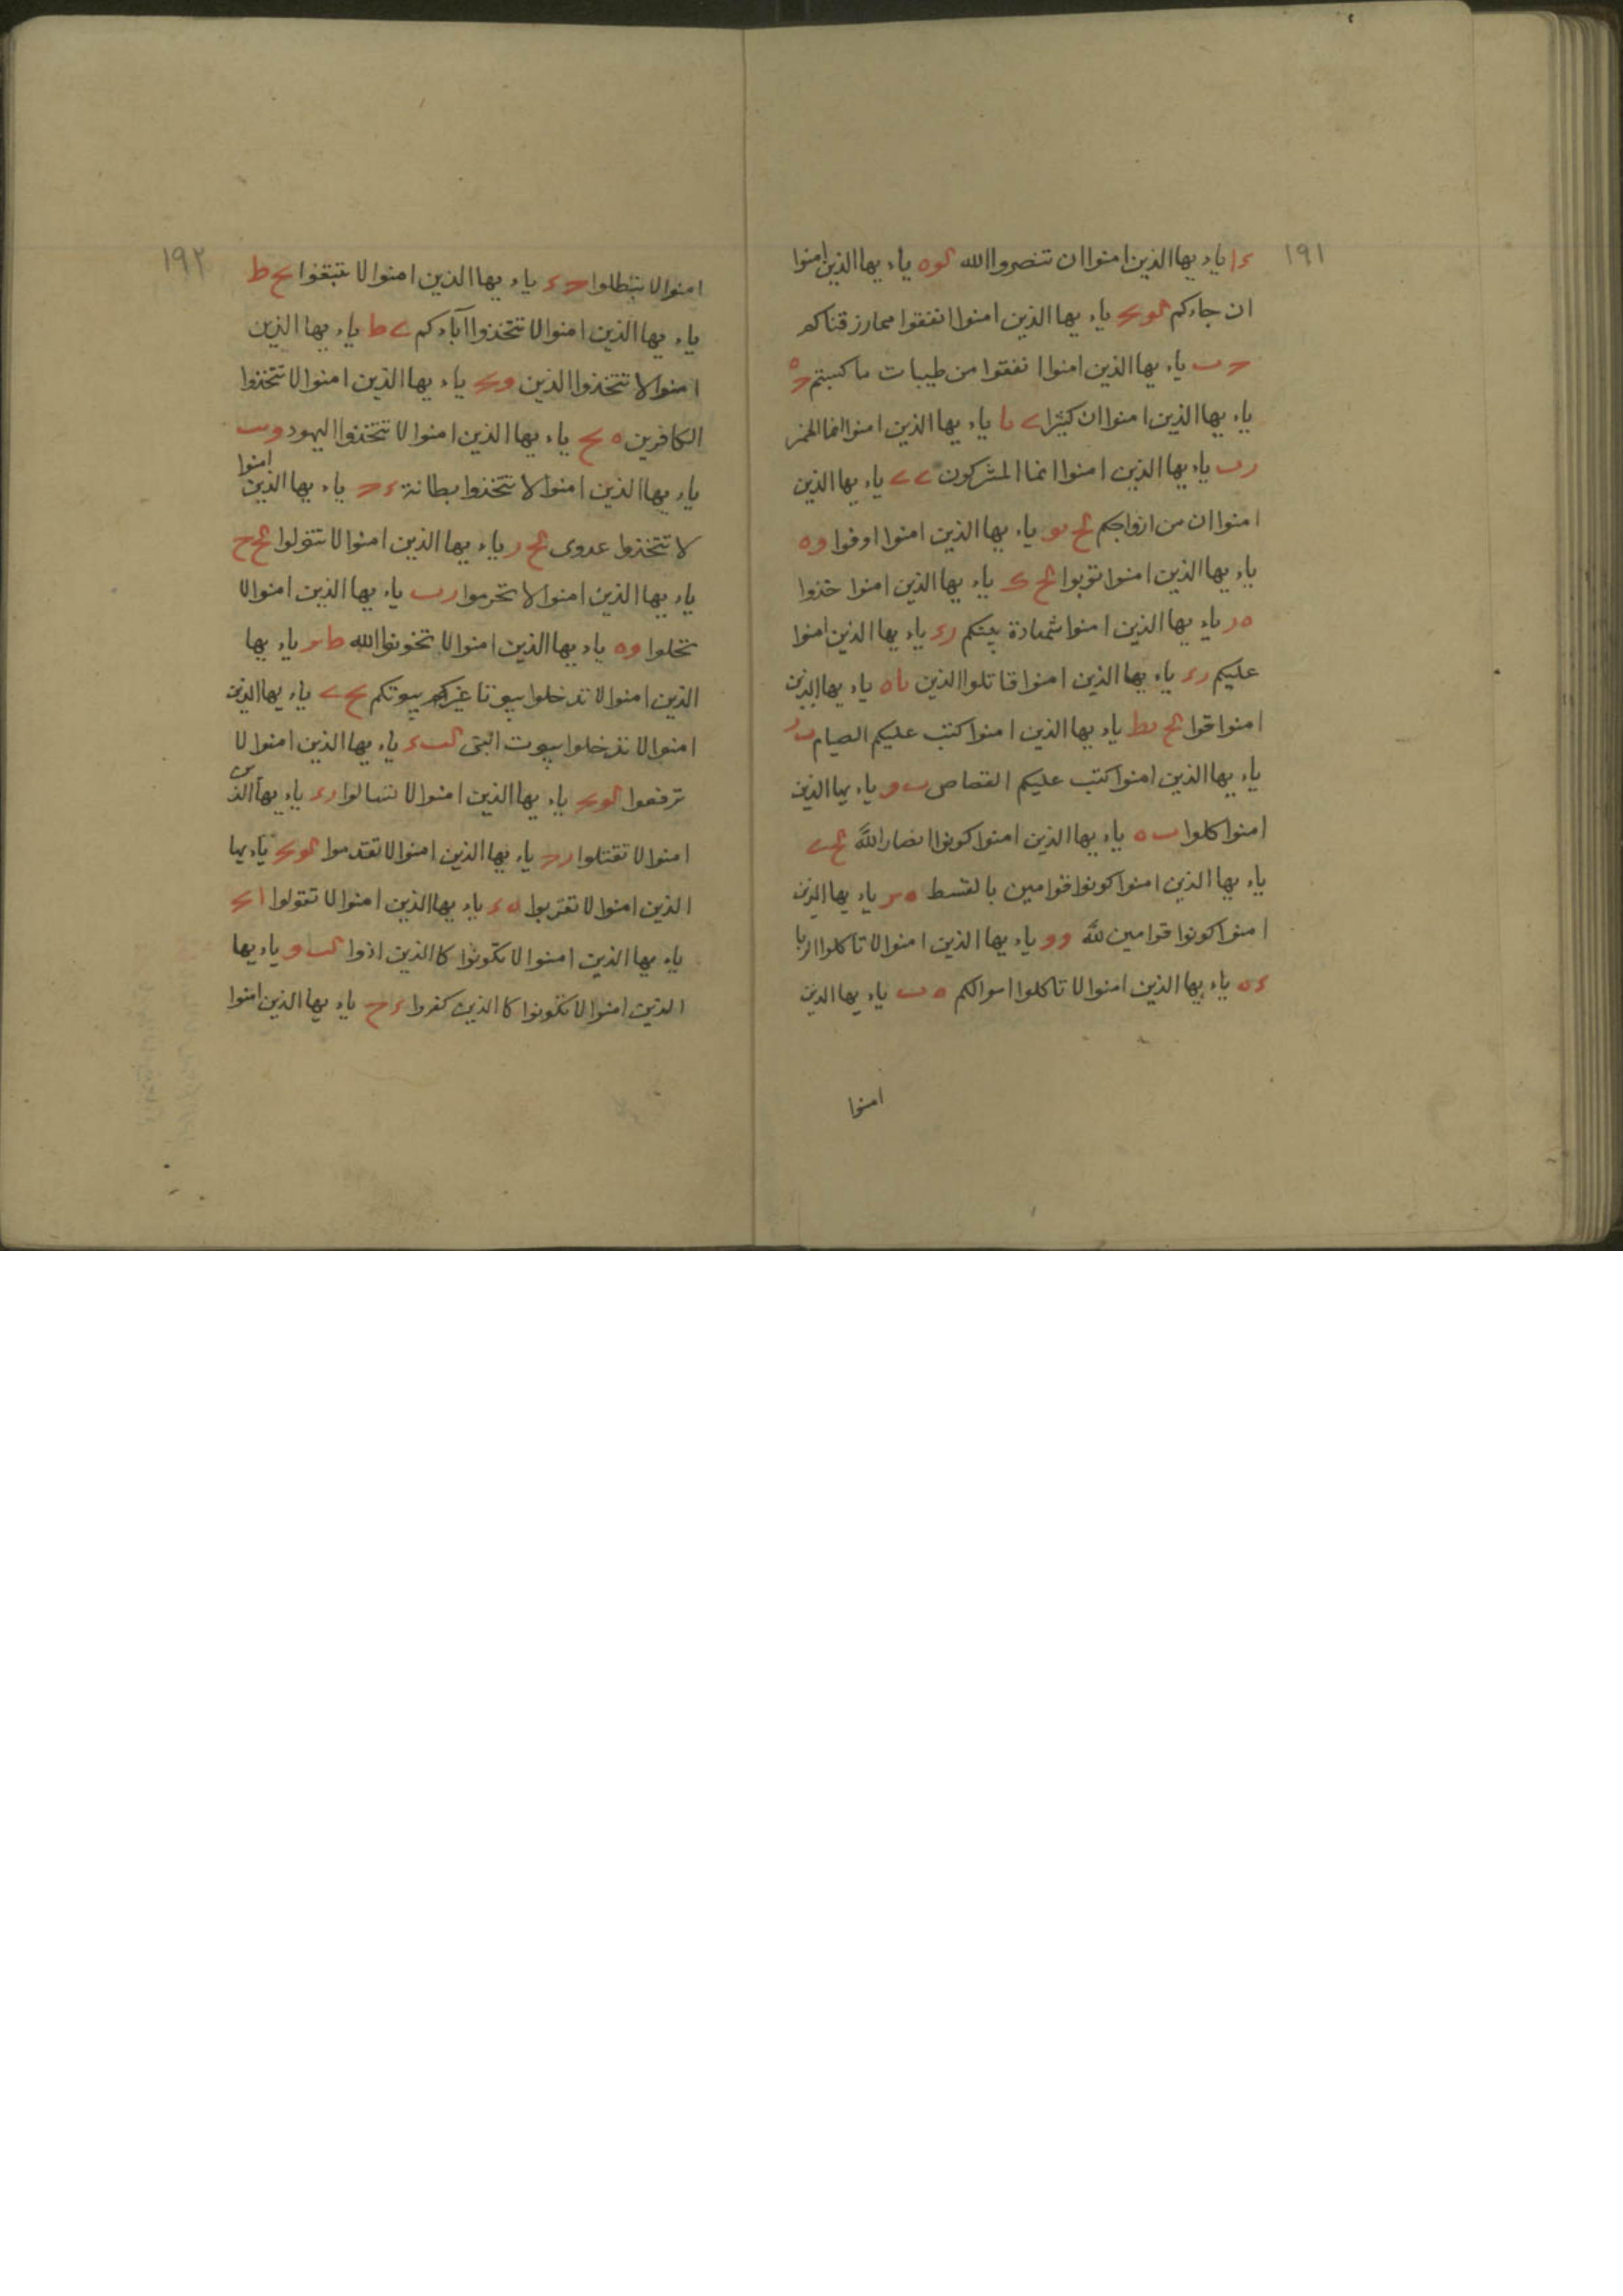 ١٩١
ء١ ياء يها الذين امنوا ان تنصروا الله ياء يها الذين امنوا
ان جاءكم ياء يها الذين امنوا انفقوا مما رزقناكم
ياء يها الذين امنوا انفقوا من طيبات ما كسبتم
ياء يها الذين امنوا ان كثيرا ياء يها الذين امنوا انما الخمر
ياء يها الذين امنوا انما المشركون ياء يها الذين
امنوا ان من ازواجكم ياء يها الذين امنوا اوفوا
ياء يها الذين امنوا توبوا ياء يها الذين امنوا خذوا
ياء يها الذين امنوا شهادة بينكم ياء يها الذين امنوا
عليكم ياء يها الذين امنوا قاتلوا الذين ياء يها الذين
امنوا قوا ياء يها الذين امنوا كتب عليكم الصيام
ياء يها الذين امنوا كتب عليكم القصاص ياء يها الذين
امنوا كلوا ياء يها الذين امنوا كونوا انصار الله
ياء يها الذين امنوا كونوا قوامين بالقسط ياء يها الذين
امنوا كونوا قوامين لله وو ياء يها الذين امنوا لا تاكلوا الربا
ياء يها الذين امنوا لا تاكلوا اموالكم ياء يها الذين
امنوا
١٩٢
امنوا لا تبطلوا ياء يها الذين امنوا لا تتبعوا
ياء يها الذين امنوا لا تتخذوا آباءكم ياء يها الذين
امنوا لا تتخذوا الذين ياء يها الذين امنوا لا تتخذوا
الكافرين ياء يها الذين امنوا لا تتخذوا اليهود
ياء يها الذين امنوا لا تتخذوا بطانة ياء يها الذين امنوا
لا تتخذوا عدوى ياء يها الذين امنوا لا تتولوا
ياء يها الذين امنوا لا تحرموا ياء يها الذين امنوا لا
تحلوا ياء يها الذين امنوا لا تخونوا الله ياء يها
الذين امنوا لا تدخلوا بيوتا غير بيوتكم ياء يها الذين
امنوا لا تدخلوا بيوت النبى ياء يها الذين امنوا لا
ترفعوا ياء يها الذين امنوا لا تسالوا ياء يها الذين
امنوا لا تقتلوا ياء يها الذين امنوا لا تقدموا ياء يها
الذين امنوا لا تقربوا ياء يها الذين امنوا لا تقولوا
ياء يها الذين امنوا لا تكونوا كالذين اذوا ياء يها
الذين امنوا لا تكونوا كالذين كفروا ياء يها الذين امنوا